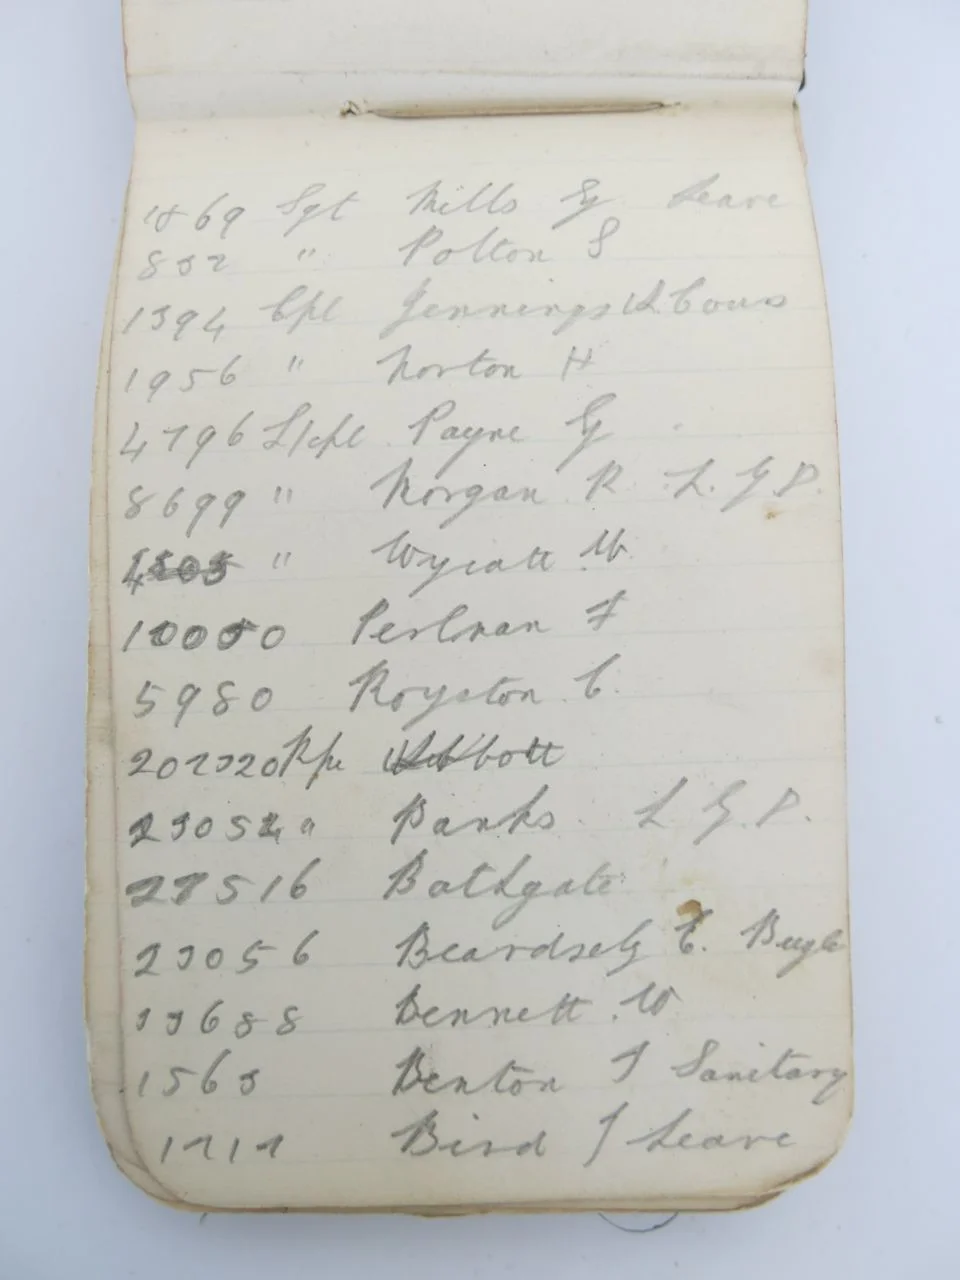 1869 Sgt Mills G Leave
832 " Polton S
1394 Cpl Jennings
1956 " Norton H
4796 L/cpl Payne G
8699 " Morgan R. L.G.P.
" Wyeatt W.
Perlman F
5980 Royston C.
202320
Banks. L.G.P.
27516 Bathgate
23056 Beardsely E. Bugle
33688 Bennett .W
1563 Benton J Sanitary
1717 Bird J Leave